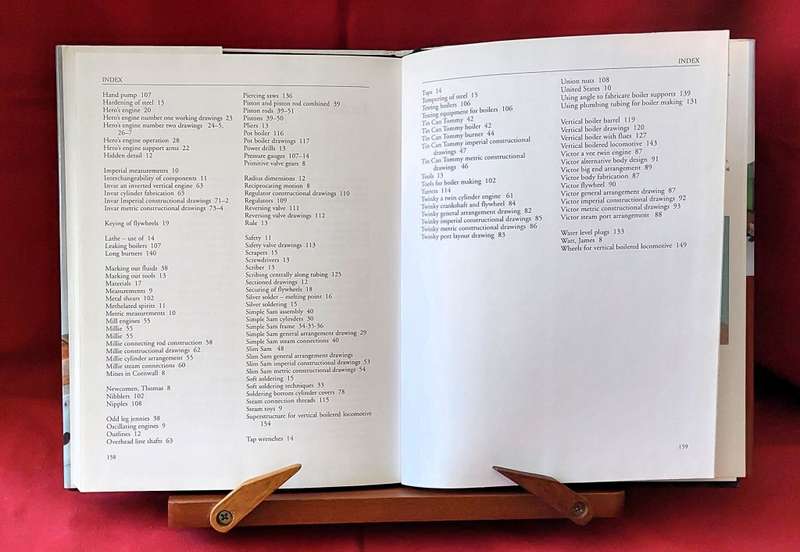 INDEX
Hand pump 107
Hardening of steel 13
Hero's engine 20
Hero's engine number one working drawings 23
Hero's engine number two drawings 24–5,
26–7
Hero's engine operation 28
Hero's engine support arms 22
Hidden detail 12
Imperial measurements 10
Interchangeability of components 11
Invar an inverted vertical engine 63
Invar cylinder fabrication 65
Invar Imperial constructional drawings 71–2
Invar metric constructional drawings 73–4
Keying of flywheels 19
Lathe – use of 14
Leaking boilers 107
Long burners 140
Marking out fluids 38
Marking out tools 13
Materials 17
Measurements 9
Metal shears 102
Methelated spirits 11
Metric measurements 10
Mill engines 55
Millie 55
Millie 55
Millie connecting rod construction 58
Millie constructional drawings 62
Millie cylinder arrangement 55
Millie steam connections 60
Mines in Cornwall 8
Newcomen, Thomas 8
Nibblers 102
Nipples 108
Odd leg jennies 38
Oscillating engines 9
Outlines 12
Overhead line shafts 63
158
Piercing saws 136
Piston and piston rod combined 39
Piston rods 39–51
Pistons 39–50
Pliers 13
Pot boiler 116
Pot boiler drawings 117
Power drills 13
Pressure gauges 107–14
Primitive valve gears 8
Radius dimensions 12
Reciprocating motion 8
Regulator constructional drawings 110
Regulators 109
Reversing valve 111
Reversing valve drawings 112
Rule 13
Safety 11
Safety valve drawings 113
Scrapers 15
Screwdrivers 13
Scriber 13
Scribing centrally along tubing 125
Sectioned drawings 12
Securing of flywheels 18
Silver solder – melting point 16
Silver soldering 15
Simple Sam assembly 40
Simple Sam cylinders 30
Simple Sam frame 34-35-36
Simple Sam general arrangement drawing 29
Simple Sam steam connections 40
Slim Sam 48
Slim Sam general arrangement drawings
Slim Sam imperial constructional drawings 53
Slim Sam metric constructional drawings 54
Soft soldering 15
Soft soldering techniques 33
Soldering bottom cylinder covers 78
Steam connection threads 115
Steam toys 9
Superstructure for vertical boilered locomotive
154
Tap wrenches 14
INDEX
Taps 14
Tempering of steel 15
Testing boilers 106
Testing equipment for boilers 106
Tin Can Tommy 42
Tin Can Tommy boiler 42
Tin Can Tommy burner 44
Tin Can Tommy imperial constructional
drawings 47
Tin Can Tommy metric constructional
drawings 46
Tools 13
Tools for boiler making 102
Turrets 114
Twinky a twin cylinder engine 61
Twinky crankshaft and flywheel 84
Twinky general arrangement drawing 82
Twinky imperial constructional drawings 85
Twinky metric constructional drawings 86
Twinky port layout drawing 83
Union nuts 108
United States 10
Using angle to fabricate boiler supports 139
Using plumbing tubing for boiler making 131
Vertical boiler barrel 119
Vertical boiler drawings 120
Vertical boiler with flues 127
Vertical boilered locomotive 143
Victor a vee twin engine 87
Victor alternative body design 91
Victor big end arrangement 89
Victor body fabrication 87
Victor flywheel 90
Victor general arrangement drawing 87
Victor imperial constructional drawings 92
Victor metric constructional drawings 93
Victor steam port arrangement 88
Water level plugs 133
Watt, James 8
Wheels for vertical boilered locomotive 149
159